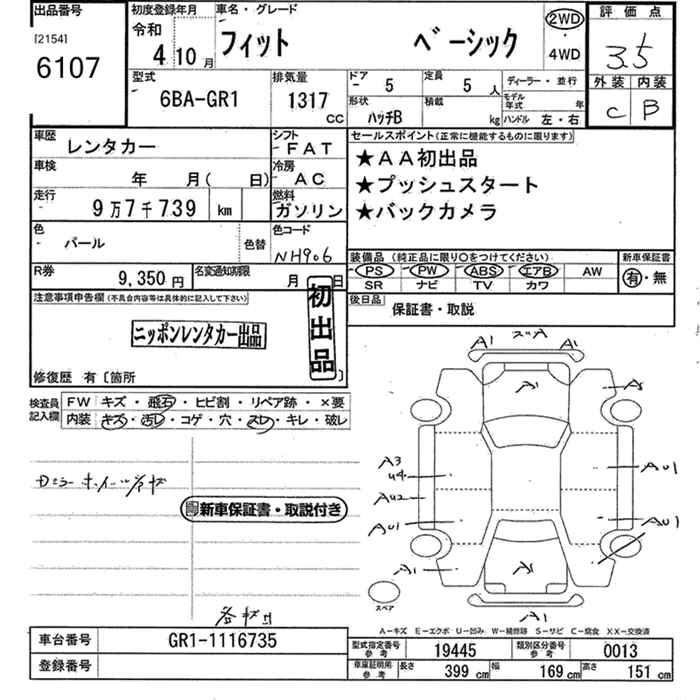 出品番号
[2154]
6107
初度登録年月
令和
4 10月
車名・グレード
フィット ベーシック
2WD
・
4WD
評価点
3.5
外装 内装
C B
型式
6BA-GR1
排気量
1317
CC
ドア
- 5
定員
5 人
形状
ハッチB
積載
kg
ディーラー・並行
モデル年式 年
ハンドル 左・右
車歴
レンタカー
シフト
FAT
車検
年 月( 日)
冷房
AC
走行
9万7千739 km
燃料
ガソリン
色
パール
色替
色コード
NH906
R券
9,350円
名変通知期限
月 日
セールスポイント(正常に機能するものに限ります)
★AA初出品
★プッシュスタート
★バックカメラ
装備品(純正品に限り○をつけてください)
PS PW ABS エアB AW
SR ナビ TV カワ
新車保証書
有・無
後日品
保証書・取説
注意事項申告欄(不具合内容等は具体的に記入して下さい)
ニッポンレンタカー出品
初出品
修復歴 有〔箇所 〕
検査員記入欄
FW キズ・飛石・ヒビ割・リペア跡・×要
内装 キズ・汚レ・コゲ・穴・スレ・キレ・破レ
新車保証書・取説付き
A1 A1
A1
A3
U4
AU2
AU1
A1
AU1
AU1
A1
A1
スペア
A-キズ E-エクボ U-凹み W-補修跡 S-サビ C-腐食 XX-交換済
車台番号
GR1-1116735
登録番号
型式指定番号
参考
19445
類別区分番号
参考
0013
車庫証明用
参考
長さ
399 cm
幅
169 cm
高さ
151 cm